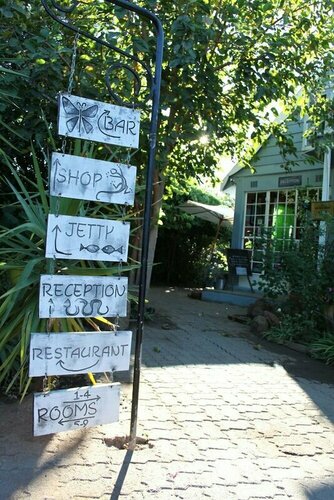 BAR
SHOP
JETTY
RECEPTION
RESTAURANT
1-4
ROOMS
5-9